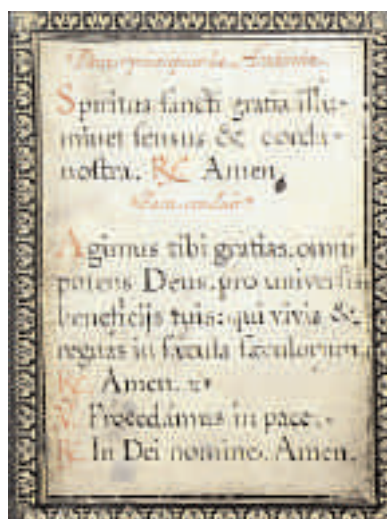 Spiritus sancti gratia illu-
minet sensus & corda
nostra. ℟ Amen.
Agimus tibi gratias, omni
potens Deus, pro universis
beneficijs tuis: qui vivis &
regnas in sæcula sæculorum.
℟ Amen.
℣ Procedamus in pace.
℟ In Dei nomine. Amen.